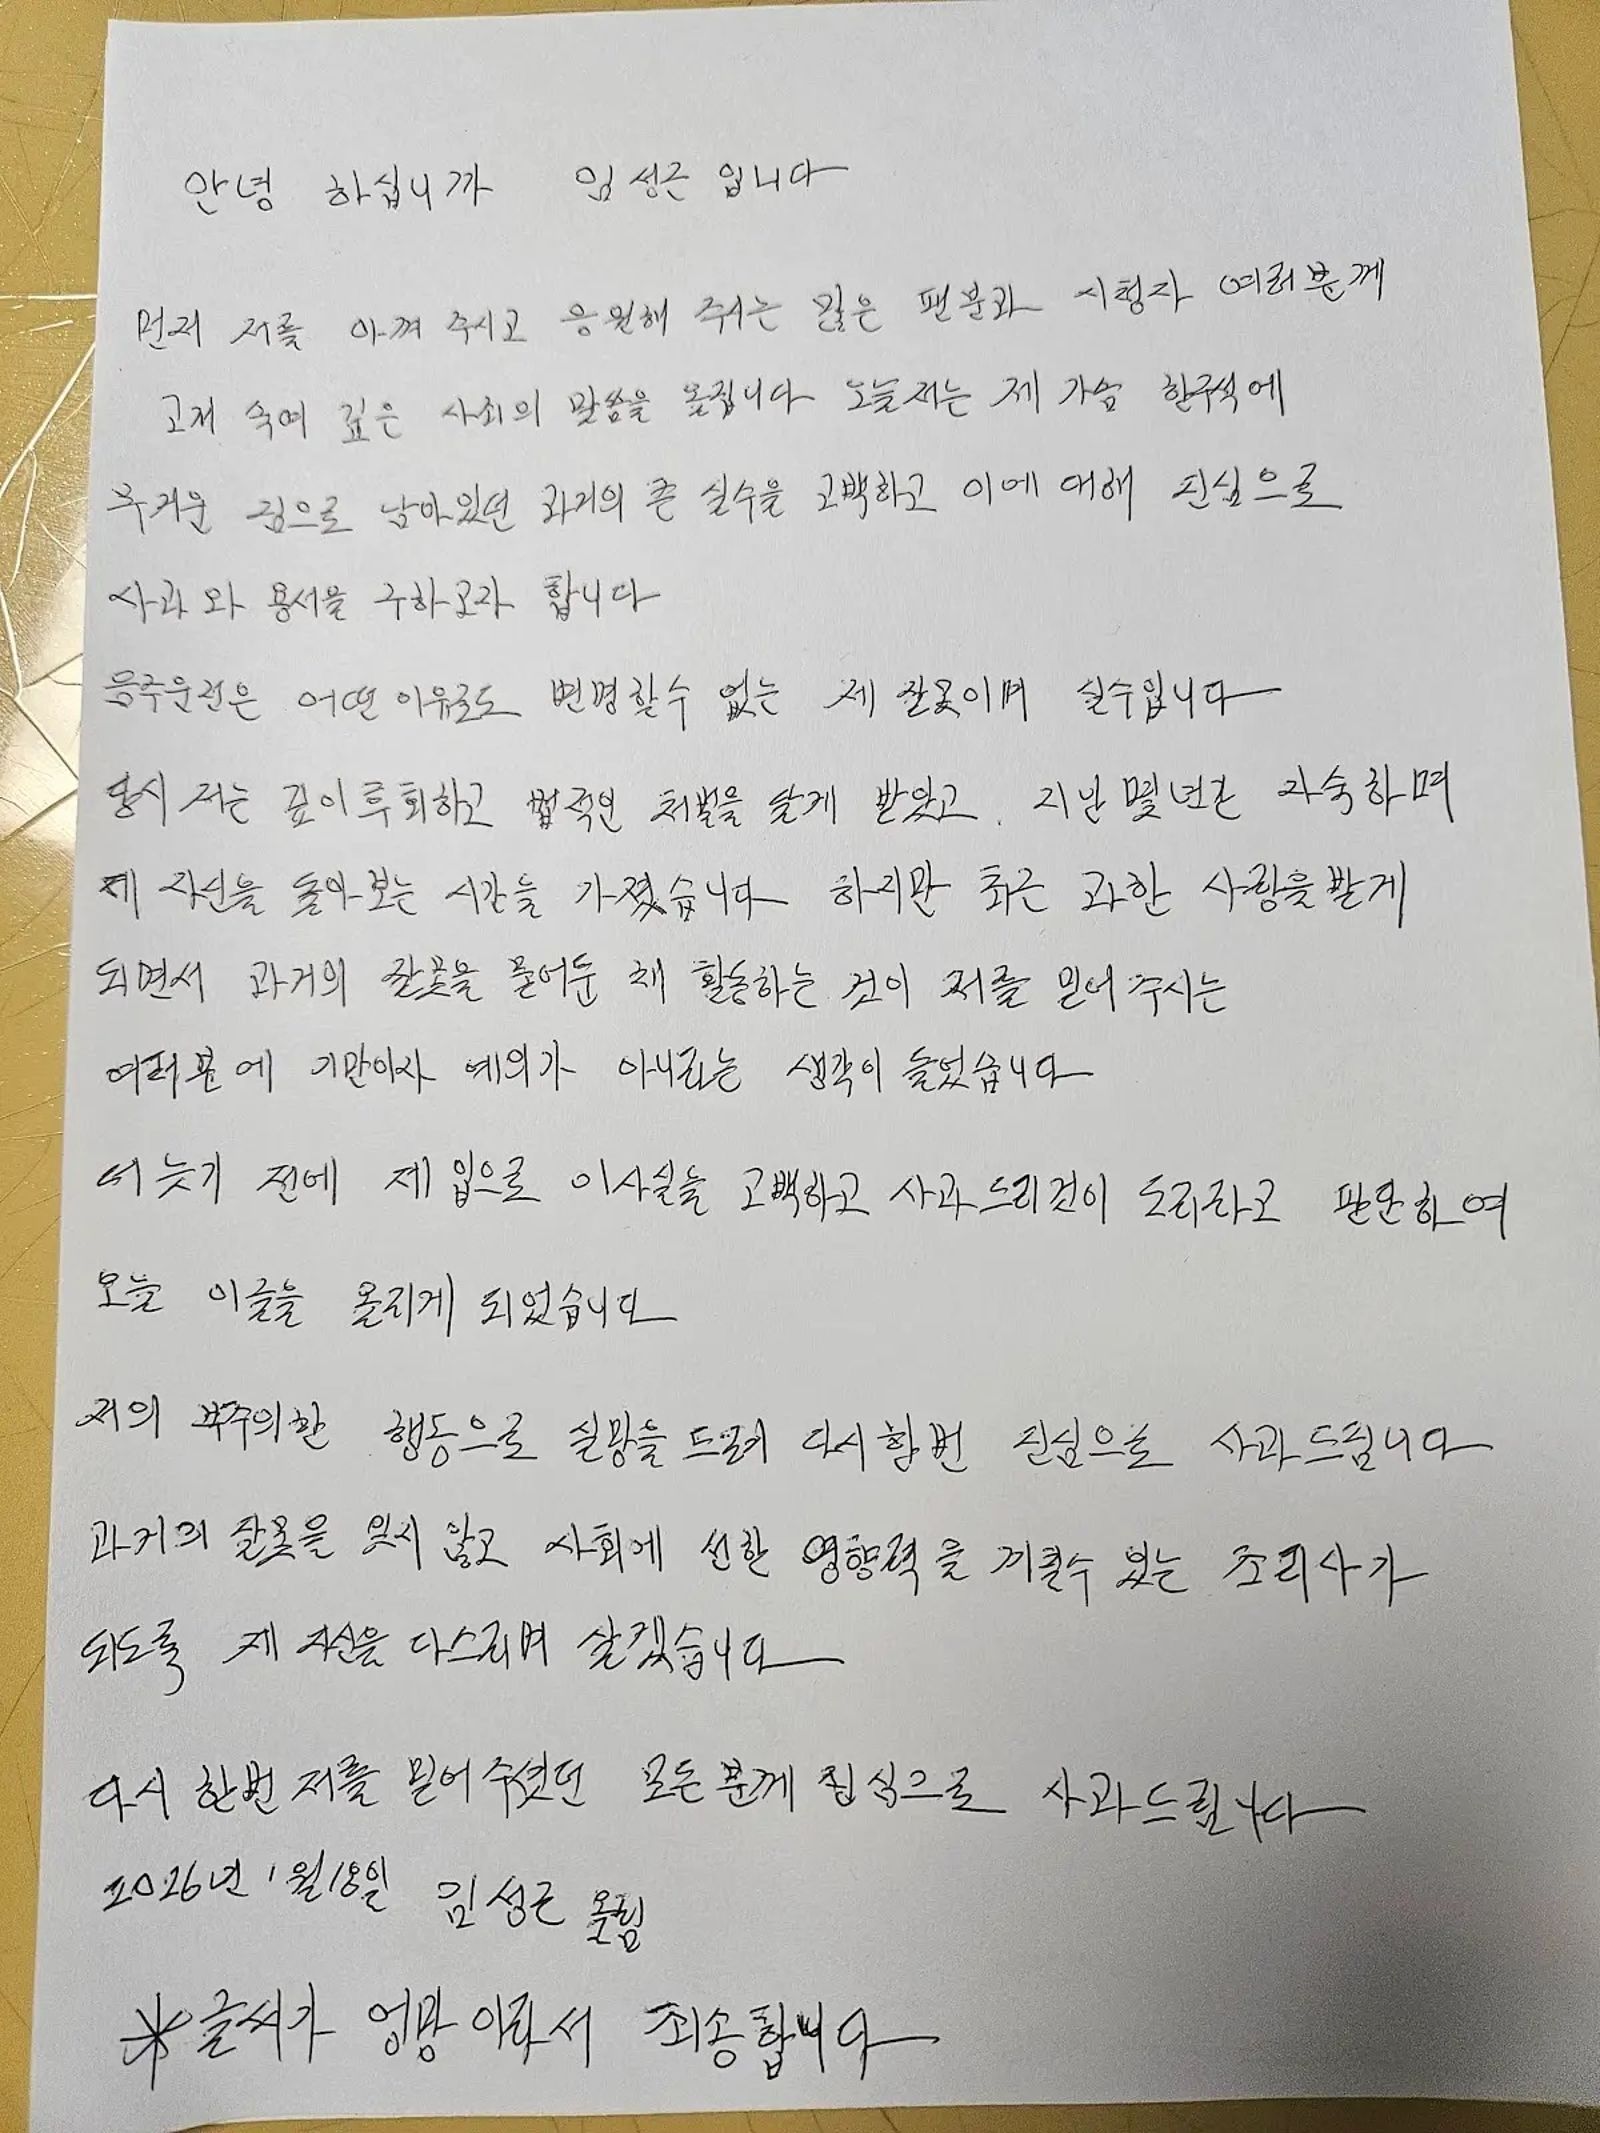 안녕 하십니까 임성근 입니다
먼저 저를 아껴 주시고 응원해 주시는 많은 팬분과 시청자 여러분께
고개 숙여 깊은 사죄의 말씀을 올립니다 오늘 저는 제 가슴 한구석에
무거운 짐으로 남아있던 과거의 큰 실수을 고백하고 이에 대해 진심으로
사과 와 용서을 구하고자 합니다
음주운전은 어떤 이유로도 변명할수 없는 제 잘못이며 실수입니다
당시 저는 깊이 후회하고 법적인 처벌을 달게 받았고. 지난 몇년간 자숙하며
제 자신을 돌아 보는 시간을 가졌습니다 하지만 최근 과한 사랑을 받게
되면서 과거의 잘못을 묻어둔 채 활동하는 것이 저를 믿어 주시는
여러분에 기만이자 예의가 아니라는 생각이 들었습니다
더 늦기 전에 제 입으로 이사실을 고백하고 사과드리것이 도리라고 판단하여
오늘 이글을 올리게 되었습니다
저의 부주의한 행동으로 실망을 드려 다시한번 진심으로 사과드립니다
과거의 잘못을 잊지 않고 사회에 선한 영향력을 끼칠수 있는 조리사가
되도록 제 자신을 다스리며 살겠습니다
다시 한번 저를 믿어 주셨던 모든분께 진심으로 사과드립니다
2026년 1월18일 임성근 올림
※글씨가 엉망 이라서 죄송합니다